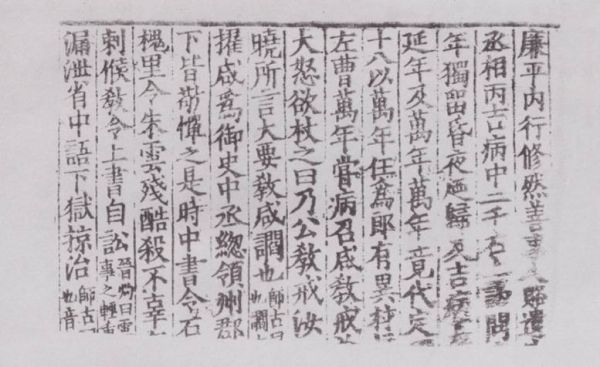 廉平內行修然善事人賂遺
丞相丙吉病中二千石上謁問
年獨留昏夜廼歸及吉病甚
延年及萬年萬年竟代定
十八以萬年任爲郎有異材
左曹萬年嘗病召咸教戒
大怒欲杖之曰乃公教戒汝
曉所言大要教咸讇也師古曰也讇
擢咸爲御史中丞總領州郡
下皆敬憚之是時中書令石
槐里令朱雲殘酷殺不辜
刺候教令上書自訟晉灼曰雲事之輕重
漏泄省中語下獄掠治師古也音